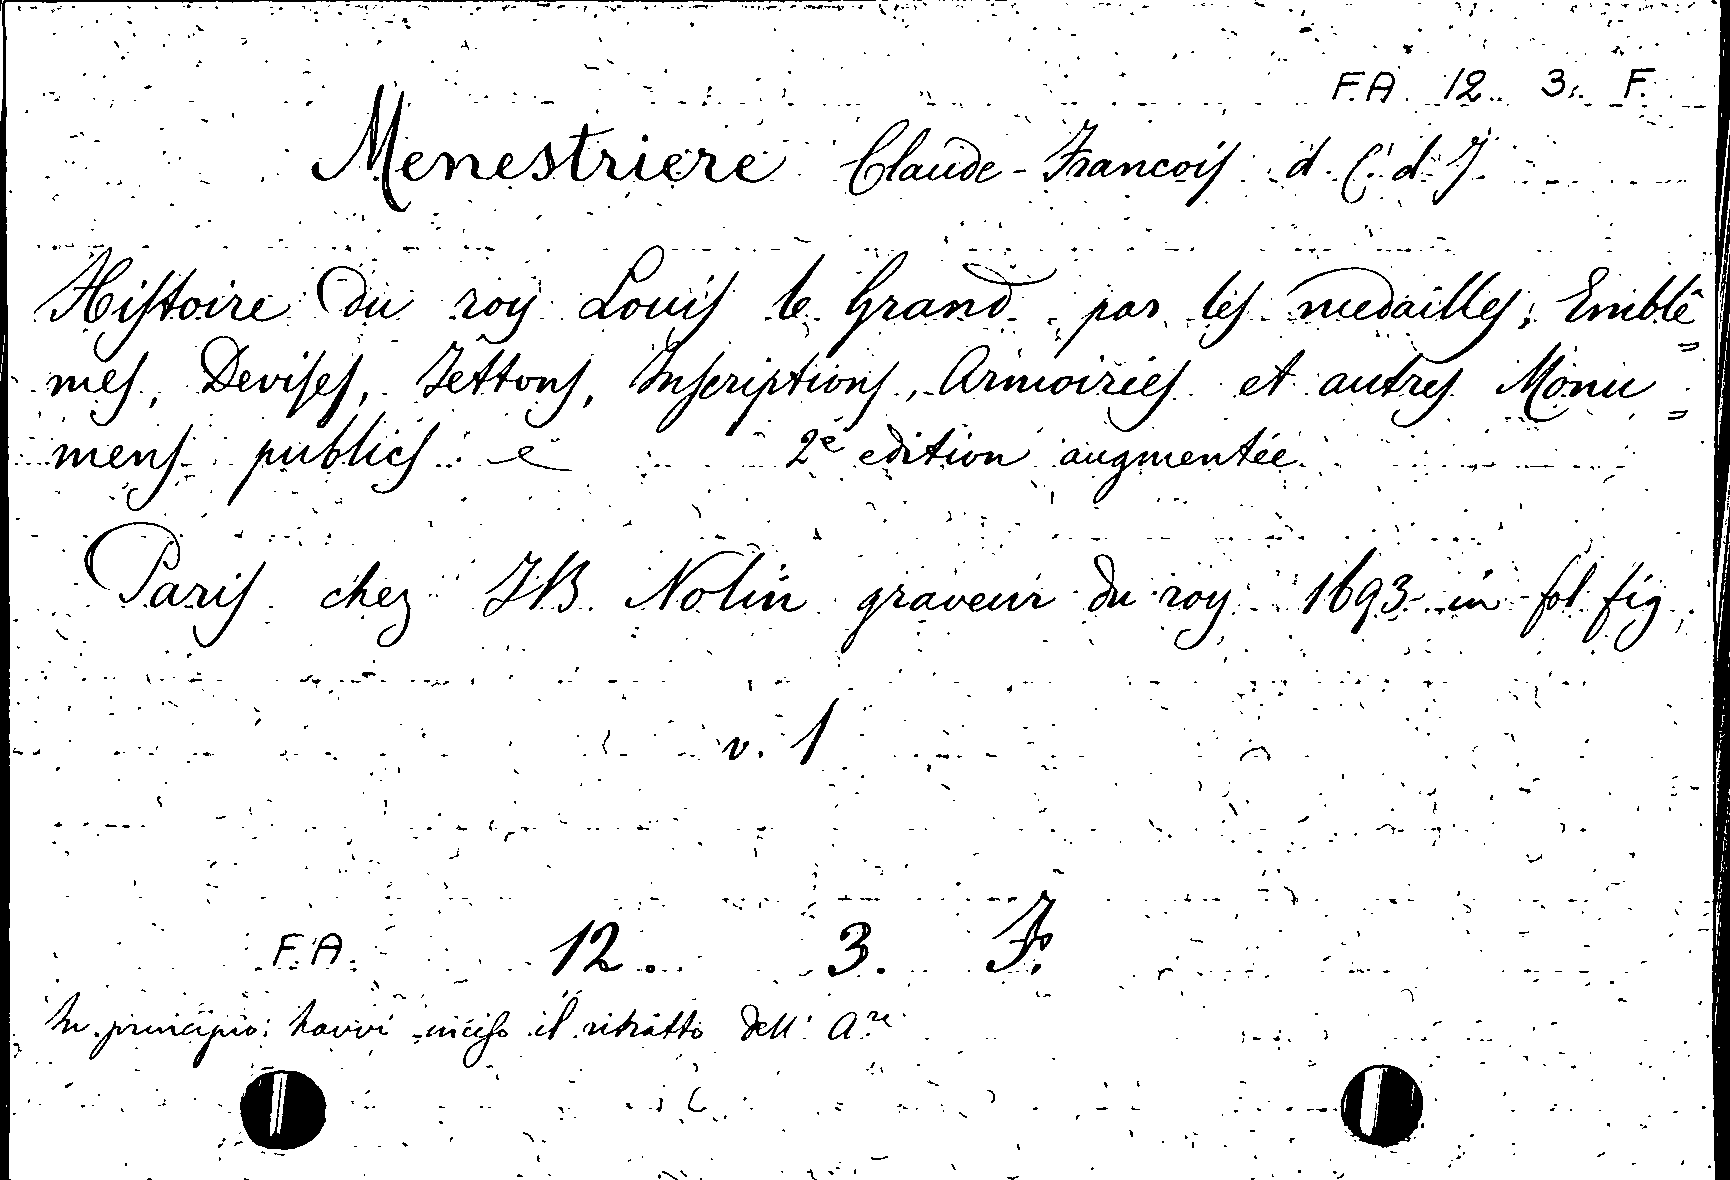 F.A. 12. 3. F.
Menestriere Claude-Francois d. C. d. J.
Histoire du roy Louis le Grand par les medailles, Emblê=
mes, Devises, Jettons, Inscriptions, Armoiries et autres Monu=
mens publics 2e edition augmentée
Paris chez J B Nolin graveur du roy 1693 in fol fig.
v. 1
F.A. 12. 3. F.
In principio havvi inciso il ritratto dell' Are